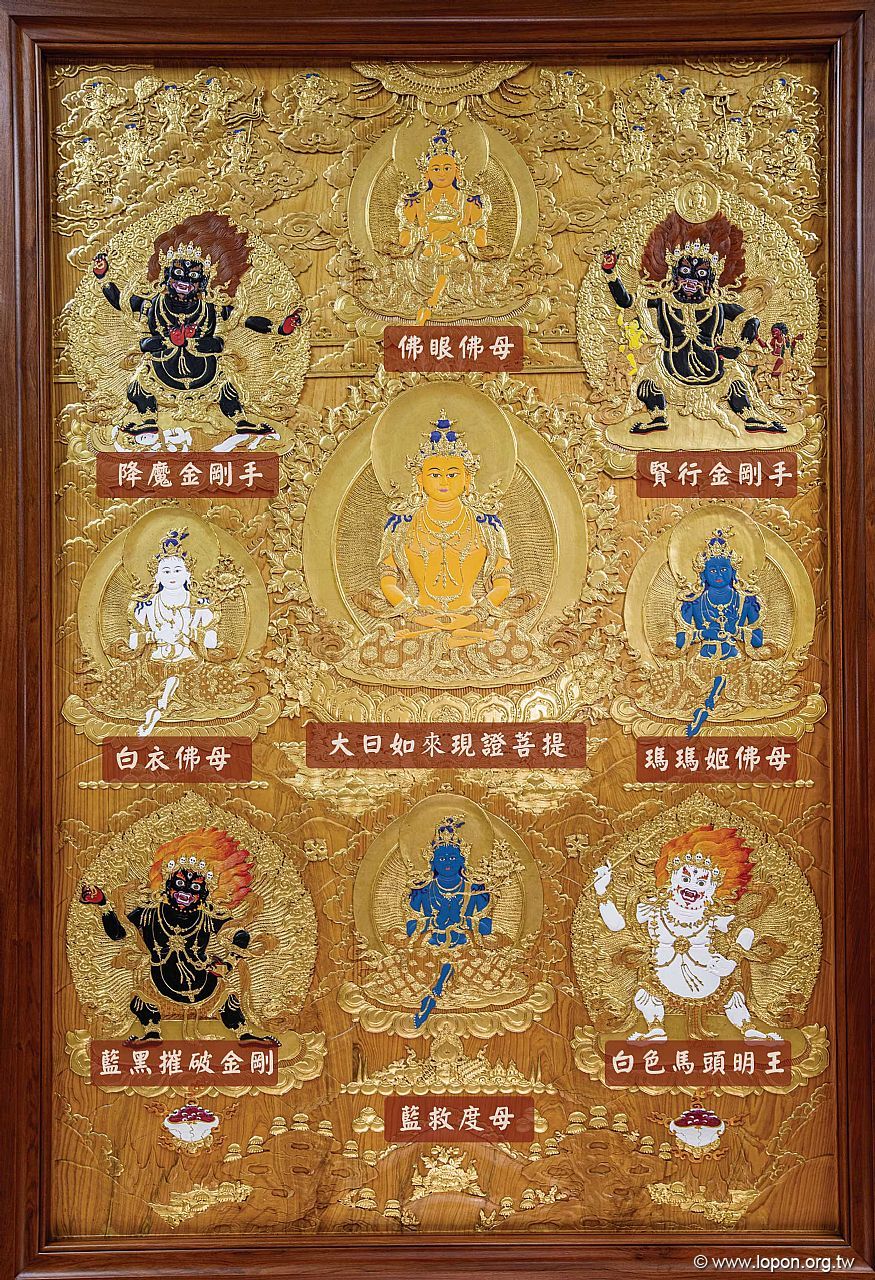 佛眼佛母
降魔金剛手
賢行金剛手
白衣佛母
大日如來現證菩提
瑪瑪姬佛母
藍黑摧破金剛
白色馬頭明王
藍救度母
© www.lopon.org.tw